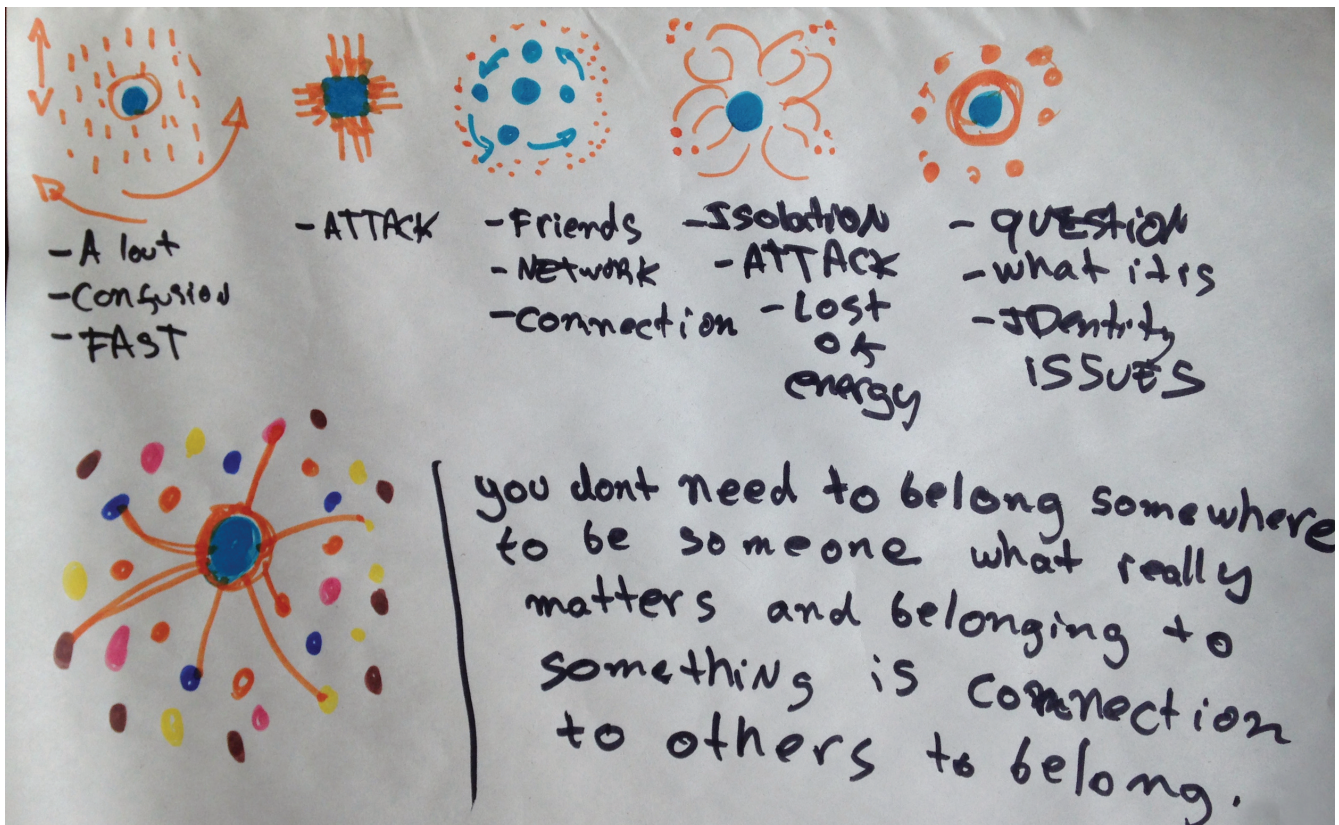 - A lout
- Confusion
- FAST
- ATTACK
- Friends
- NETWORK
- Connection
- Isolation
- ATTACK
- Lost
of
energy
- QUESTION
- what it is
- IDentity
ISSUES
you dont need to belong somewhere
to be someone what really
matters and belonging to
something is connection
to others to belong.